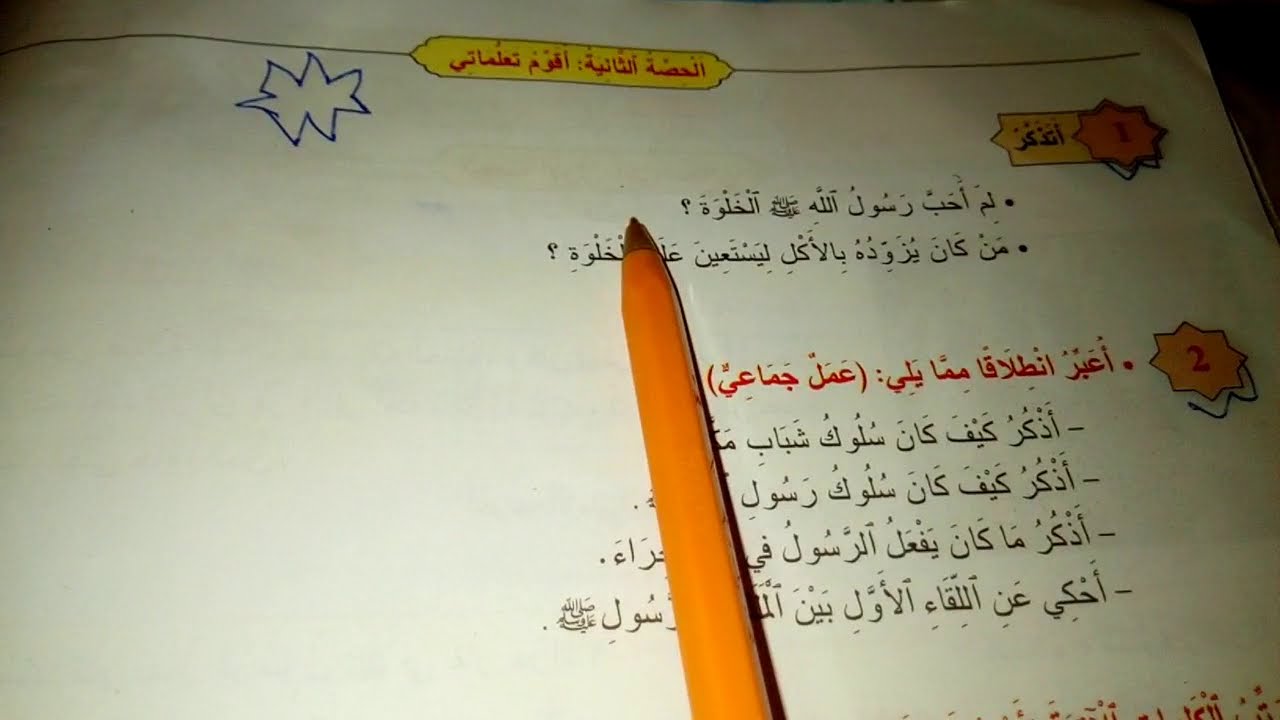 اَلْحِصَّةُ اَلثَّانِيَةُ: أُقَوِّمُ تَعَلُّمَاتِي
1 أَتَذَكَّرُ
• لِمَ أَحَبَّ رَسُولُ ٱللَّهِ ﷺ ٱلْخَلْوَةَ ؟
• مَنْ كَانَ يُزَوِّدُهُ بِالأَكْلِ لِيَسْتَعِينَ عَلَى ٱلْخَلْوَةِ ؟
2 • أُعَبِّرُ انْطِلَاقًا مِمَّا يَلِي: (عَمَلٌ جَمَاعِيٌّ)
– أَذْكُرُ كَيْفَ كَانَ سُلُوكُ شَبَابِ
– أَذْكُرُ كَيْفَ كَانَ سُلُوكُ رَسُولِ
– أَذْكُرُ مَا كَانَ يَفْعَلُ ٱلرَّسُولُ فِي حِرَاءَ.
– أَحْكِي عَنِ ٱللِّقَاءِ ٱلأَوَّلِ بَيْنَ ﷺ.